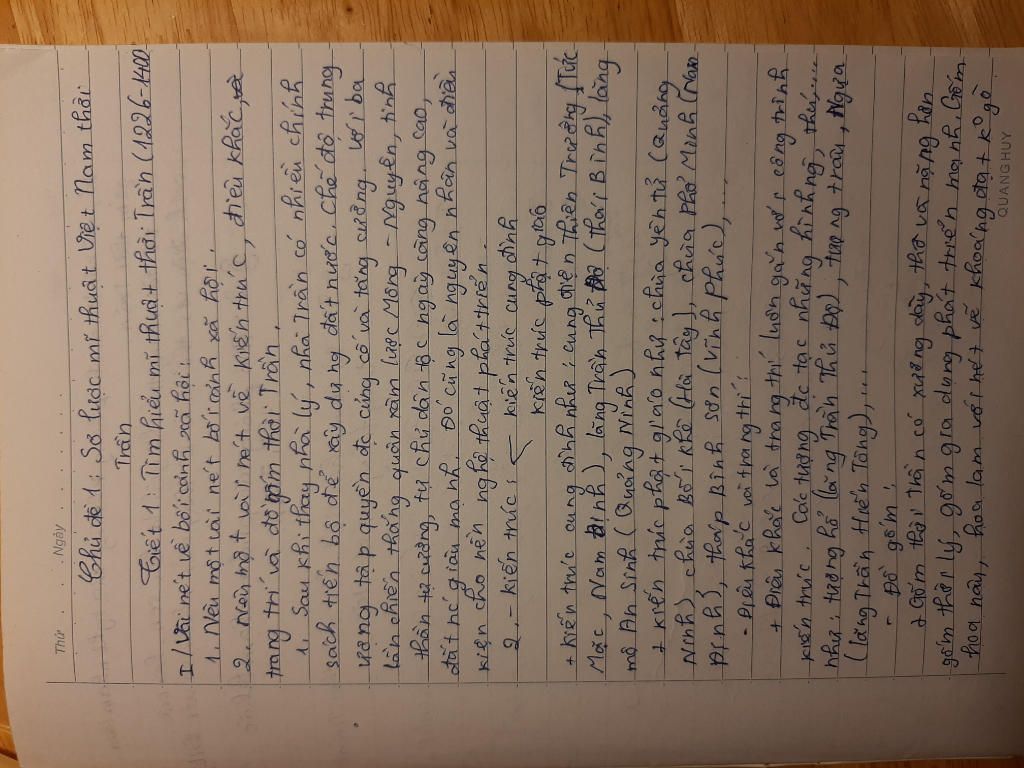 Thứ Ngày
Chủ đề 1: Sơ lược mĩ thuật Việt Nam thời
Trần
Tiết 1: Tìm hiểu mĩ thuật thời Trần (1226-1400
I/ Vài nét về bối cảnh xã hội:
1. Nêu một vài nét bối cảnh xã hội.
2. Nêu một vài nét về kiến thức, điêu khắc,
trang trí và đồ gốm thời Trần.
1. Sau khi thay phà lý, nhà Trần có nhiều chính
sách tiến bộ để xây dựng đất nước. Chế độ trung
ương tập quyền đc củng cố và tăng cường. với ba
lần chiến thắng quân xâm lược Mông - Nguyên, tinh
thần tự cường, tự chủ dân tộc ngày càng nâng cao,
đất nc giàu mạnh. Đó cũng là nguyên nhân và điều
kiện cho nền nghệ thuật phát triển.
2. - kiến trúc: < kiến trúc cung đình
kiến trúc phật giáo
+ kiến trúc cung đình như: cung điện Thiên Trường (Tức
Mặc, Nam Định), lăng Trần Thủ Độ (thái Bình), lăng
mộ An Sinh (Quảng Ninh)
+ kiến trúc phật giáo như: chùa yên tử (Quảng
Ninh) chùa Bối Khê (Hà Tây), chùa phổ Minh (Nam
Định), tháp Bình Sơn (Vĩnh phúc),...
- Điêu khắc và trang trí:
+ Điêu khắc và trang trí luôn gắn với công trình
kiến trúc. Các tượng đc tạc những hình rồng, thú,...
như: tượng hổ (lăng Trần Thủ Độ), tượng trâu, Ngựa
(lăng Trần Hiến Tông),...
- Đồ gốm:
+ Gốm thời Trần có xương dày, thô và nặng hơn
gốm thời lý, gốm gia dụng phát triển mạnh. Gốm
hoa nâu, hoa lam với nét vẽ khoáng đạt ko gò
QUANG HUY